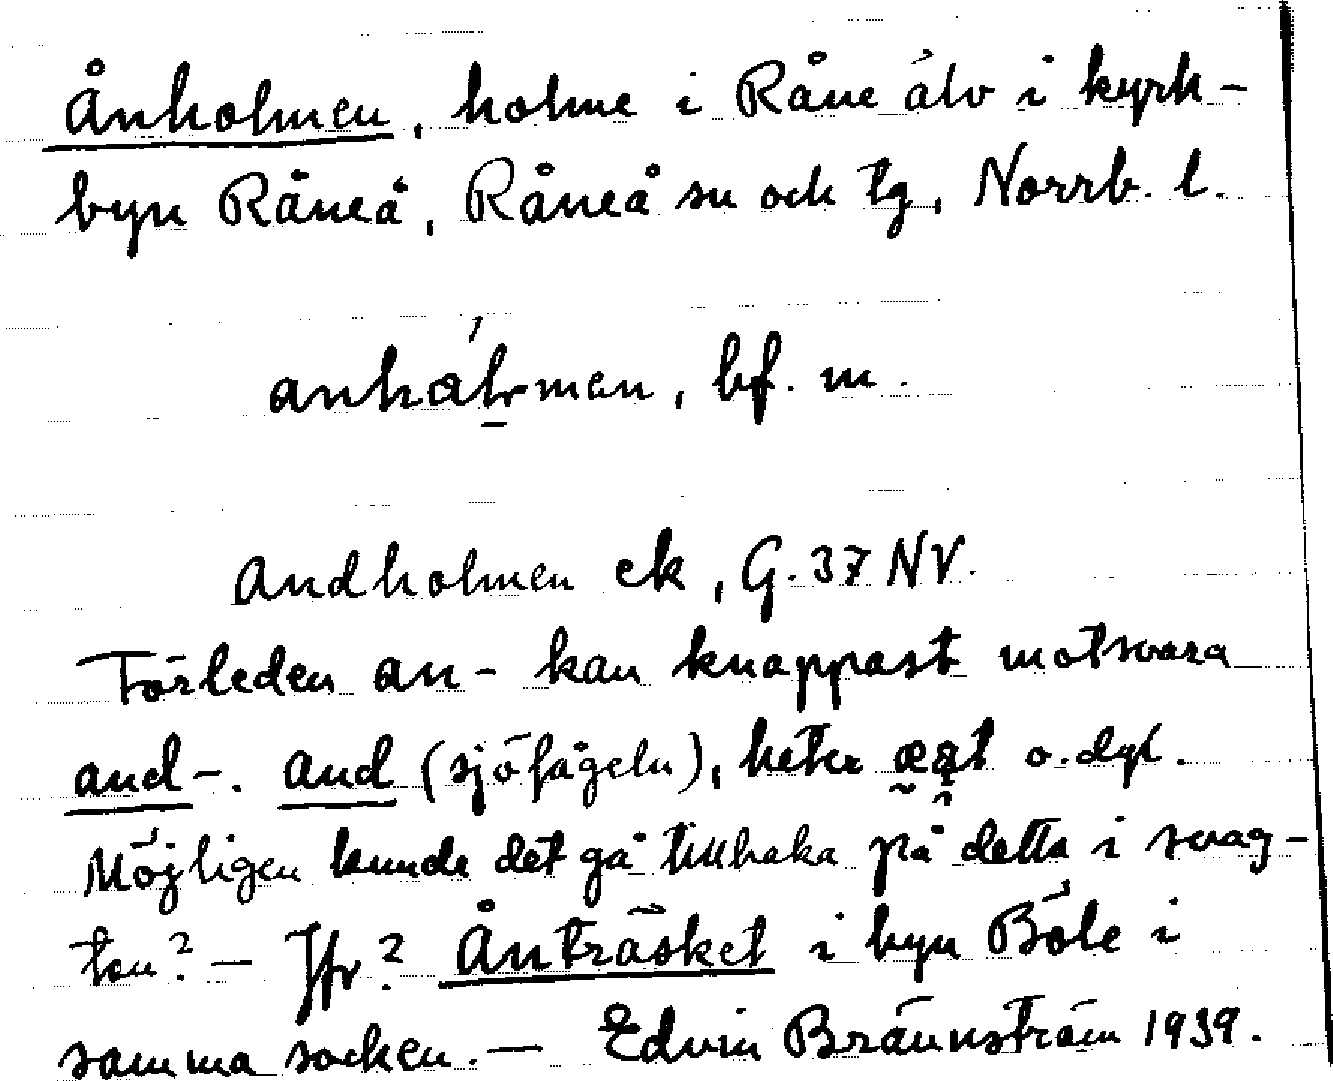 Ånholmen, holme i Råne älv i kyrk-
byn Råneå, Råneå sn och tg, Norrb. l.
anhålmen, bf. m.
Andholmen ek, G. 37 NV.
Förleden an- kan knappast motsvara
and-. and (sjöfågeln), heter o. dyl.
Möjligen kunde det gå tillbaka på detta i svag-
ton? – Jfr? Ånträsket i byn Böle i
samma socken. – Edvin Brännström 1939.